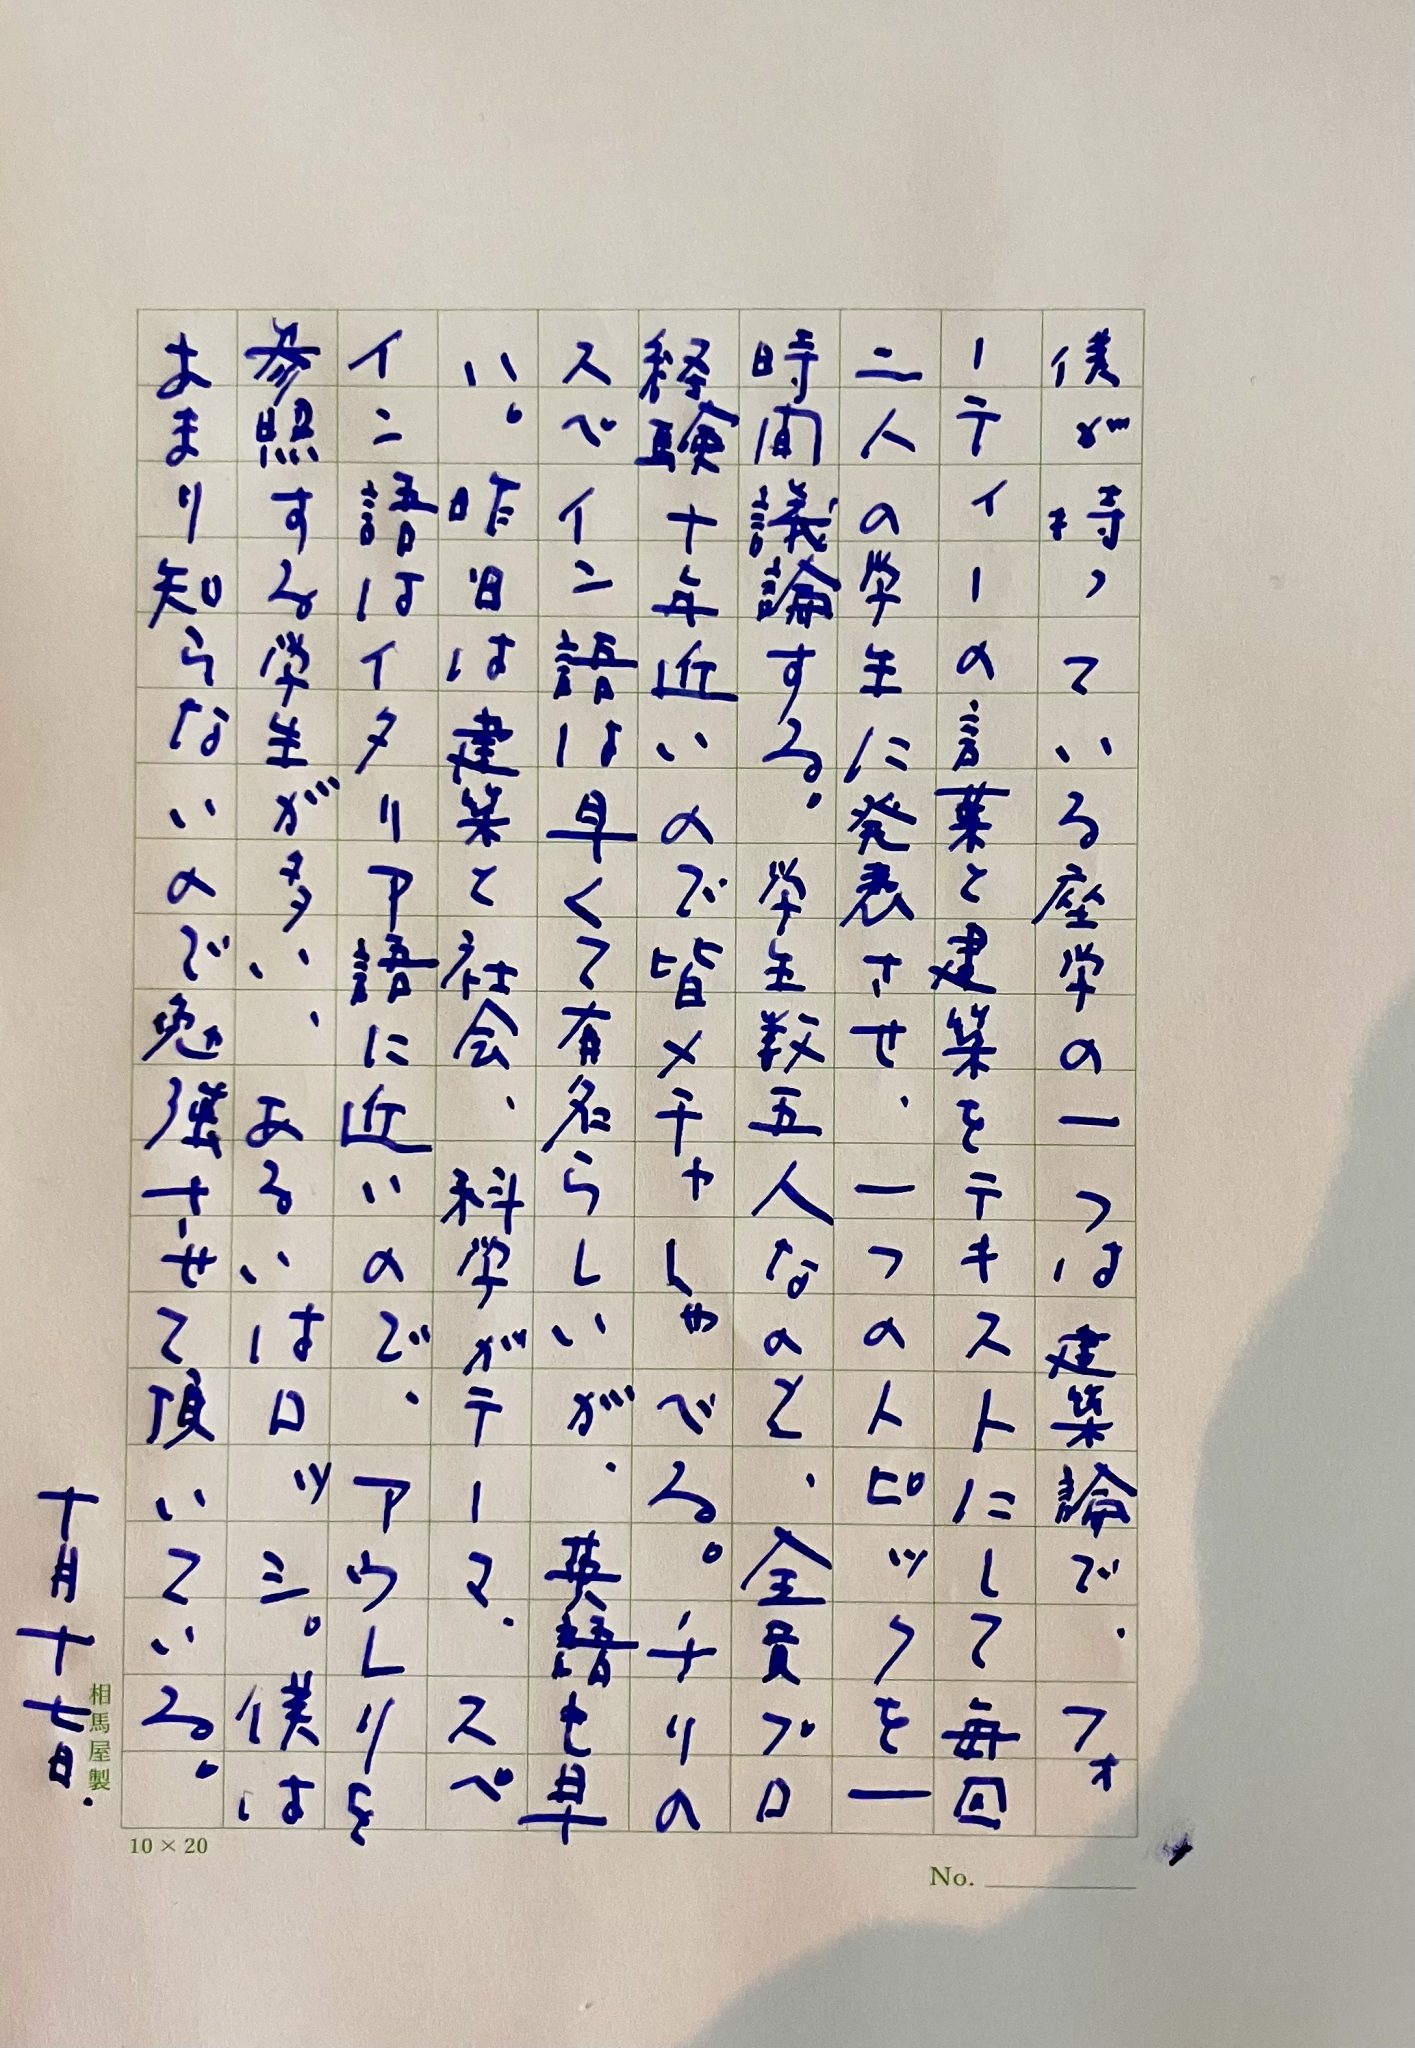 僕が持っている座学の一つは建築論で、フォ
ーティーの言葉と建築をテキストにして毎回
二人の学生に発表させ、一つのトピックを一
時間議論する。学生数五人なのと、全員プロ
経験十年近いので皆メチャしゃべる。チリの
スペイン語は早くて有名らしいが、英語も早
い。昨日は建築と社会、科学がテーマ、スペ
イン語はイタリア語に近いので、アウレリを
参照する学生が多い、あるいはロッシ。僕は
あまり知らないので勉強させて頂いている。
十月十七日.
相馬屋製
10 × 20
No.